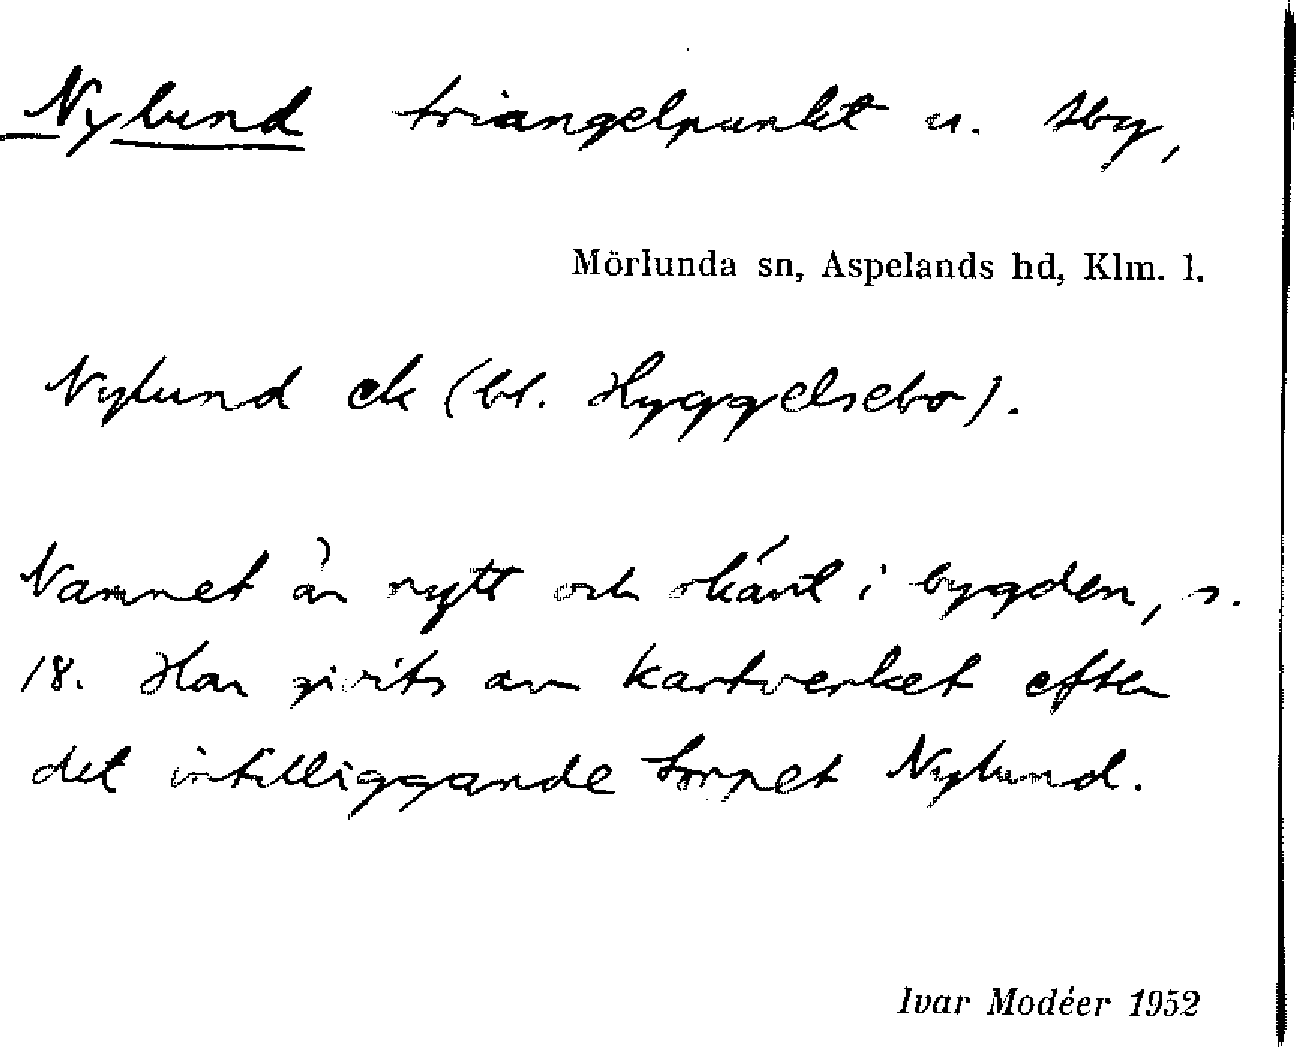 Nylund triangelpunkt u. Hby,
Mörlunda sn, Aspelands hd, Klm. l.
Nylund ek (bl. Hyggelsebo).
Namnet är nytt och okänt i bygden, s.
18. Har givits av kartverket efter
det intilliggande torpet Nylund.
Ivar Modéer 1952